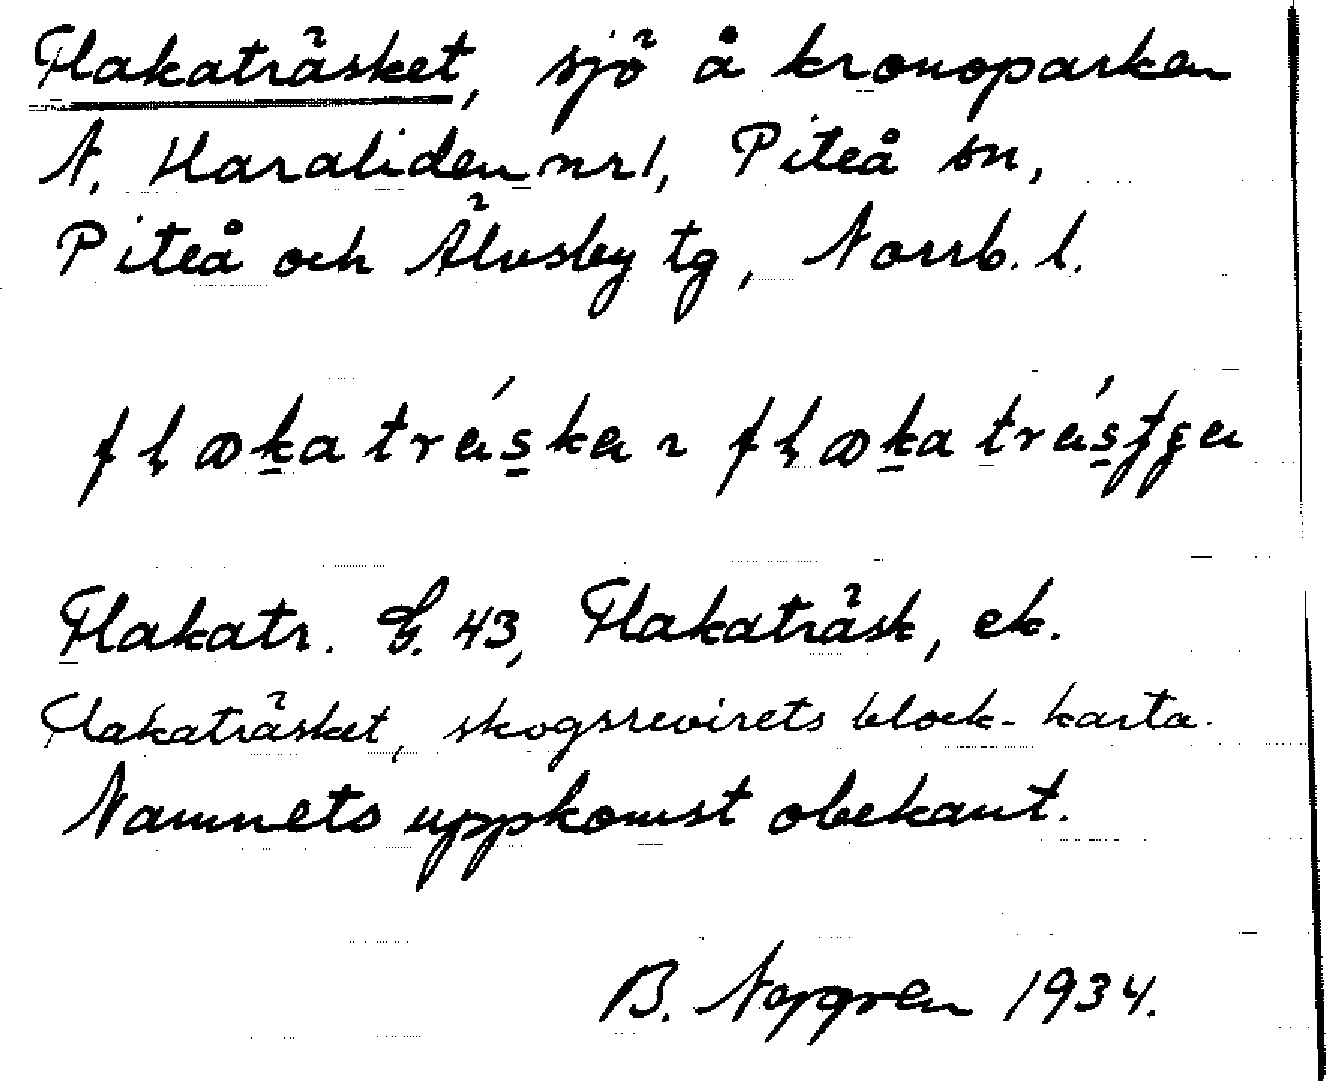 Flakaträsket, sjö å kronoparken
N. Haraliden nr 1, Piteå sn,
Piteå och Älvsby tg, Norrb. l.
Flakatr. G. 43, Flakaträsk, ek.
Flakaträsket, skogsrevirets block-karta.
Namnets uppkomst obekant.
B. 1934.